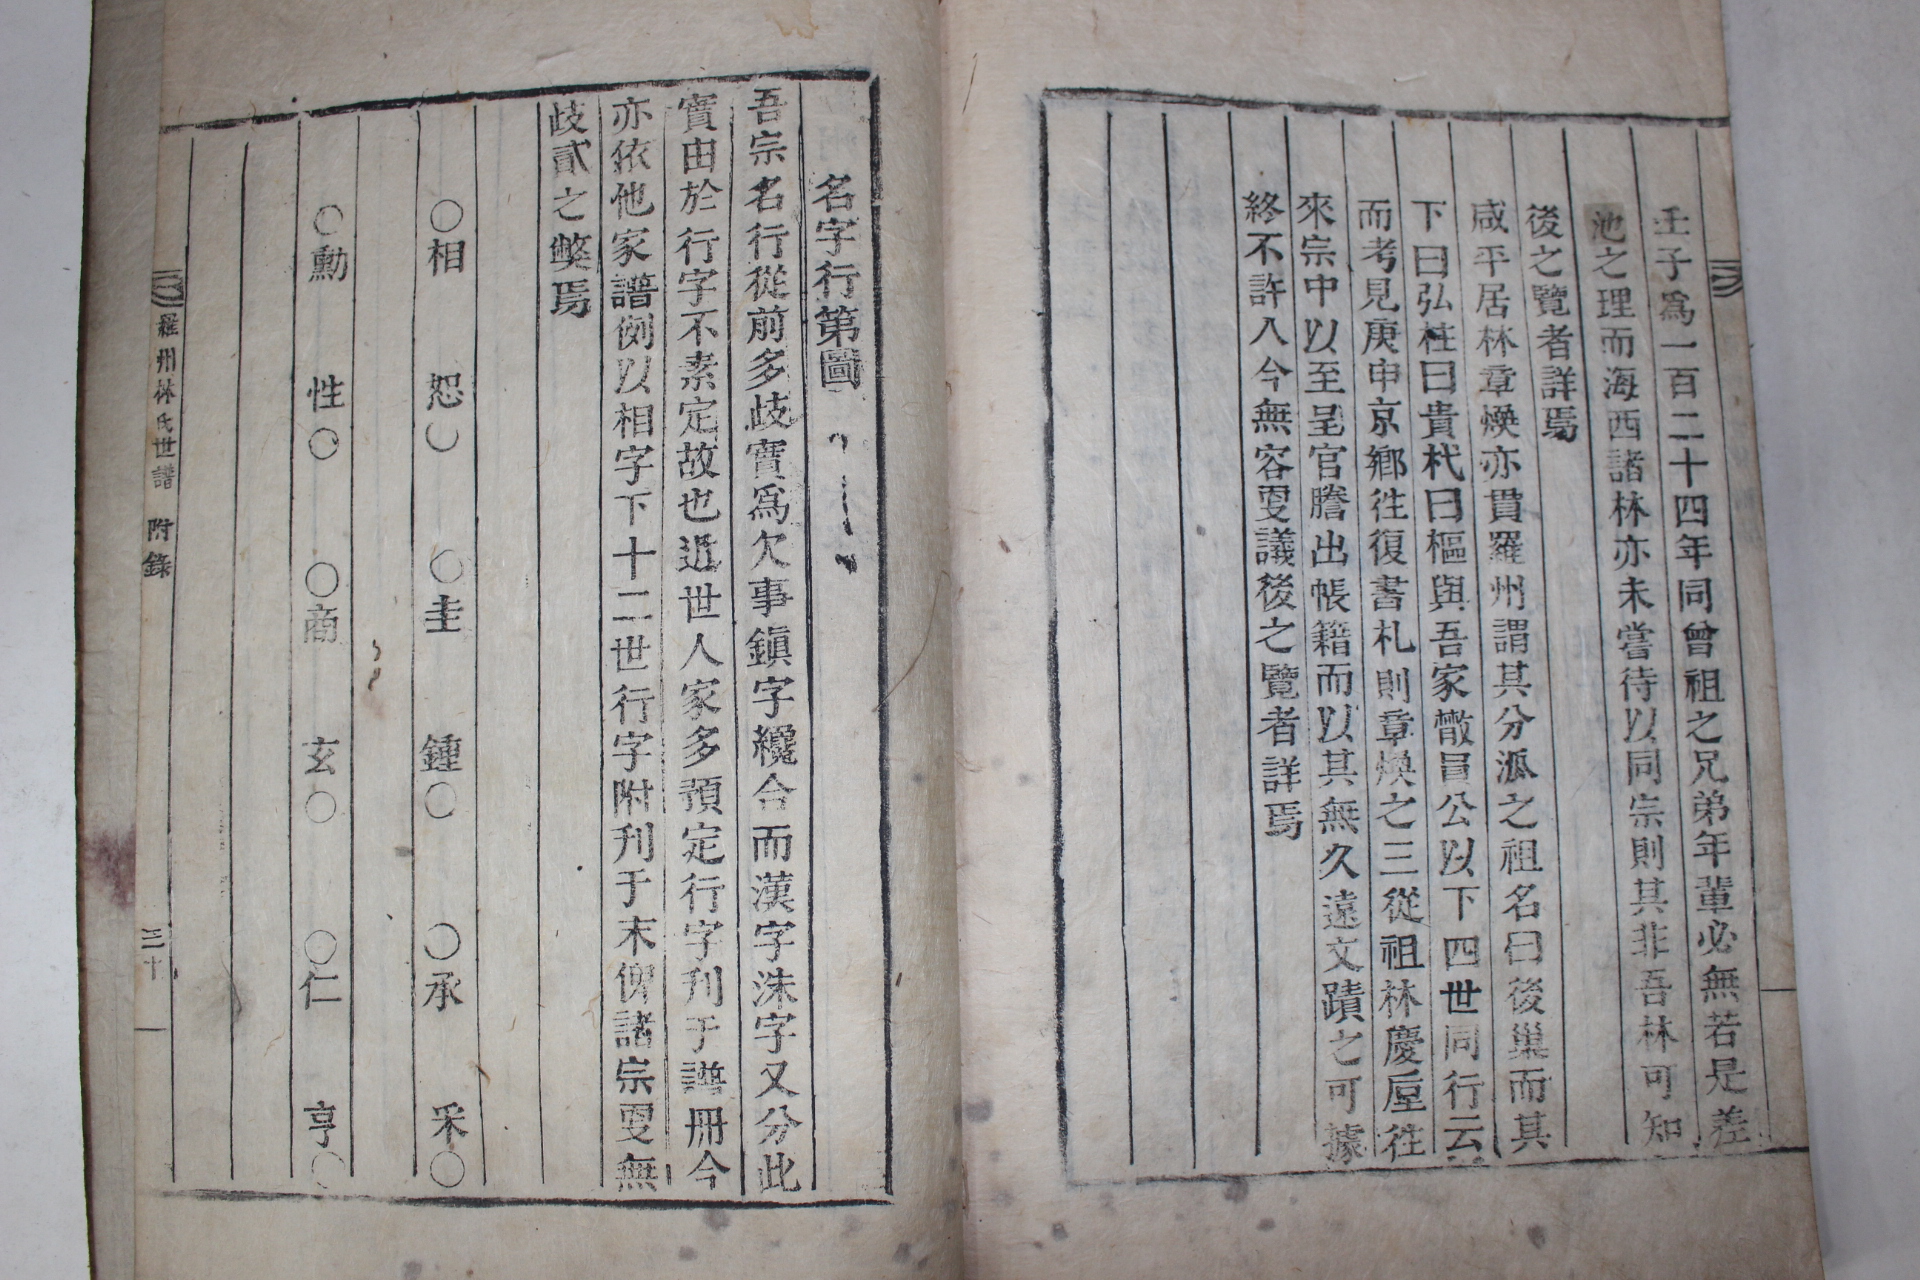 壬子爲一百二十四年同曾祖之兄弟年輩必無若是差
池之理而海西諸林亦未嘗待以同宗則其非吾林可知
後之覽者詳焉
咸平居林章煥亦貫羅州謂其分派之祖名曰後巢而其
下曰弘柱曰貴杙曰樞與吾家僉員公以下四世同行云
而考見庚申京鄕往復書札則章煥之三從祖林慶垕往
來宗中以至呈官謄出帳籍而以其無久遠文蹟之可據
終不許入今無容更議後之覽者詳焉
名字行第圖
吾宗名行從前多歧實爲欠事鎭字纔合而漢字洙字又分此
實由於行字不素定故也近世人家多預定行字刊于譜冊今
亦依他家譜例以相字下十二世行字附刊于末俾諸宗更無
歧貳之弊焉
○相 恕○ ○圭 鍾○ ○承 采○
○勳 性○ ○商 玄○ ○仁 亨○
羅州林氏世譜 附錄 三十